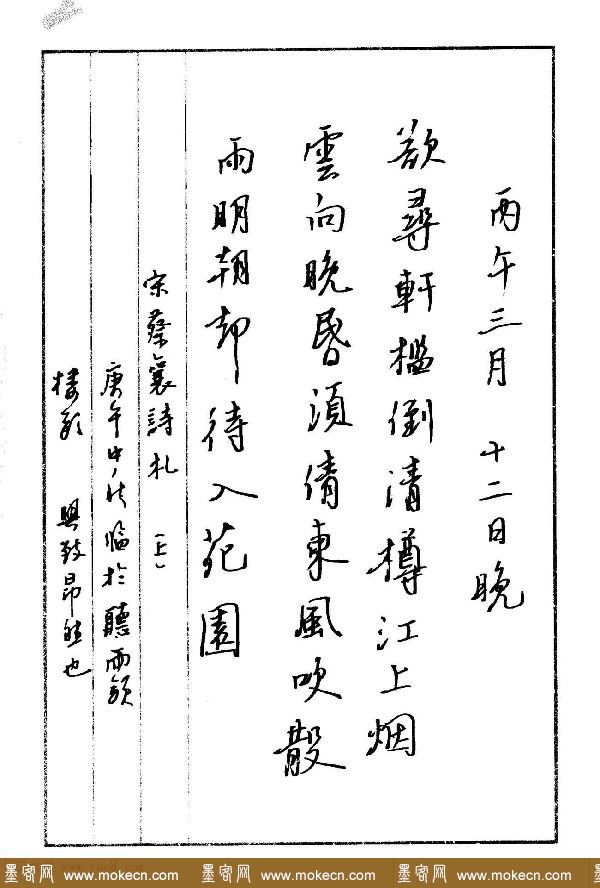 丙午三月十二日晚
欲尋軒檻倒清樽江上烟
雲向晚昏須倩東風吹散
雨明朝却待入花園
宋蔡襄詩札（上）
庚午中秋臨於聽雨
樓 興致昂然也
墨客网 www.mokecn.com 墨客网 www.mokecn.com 墨客网 www.mokecn.com